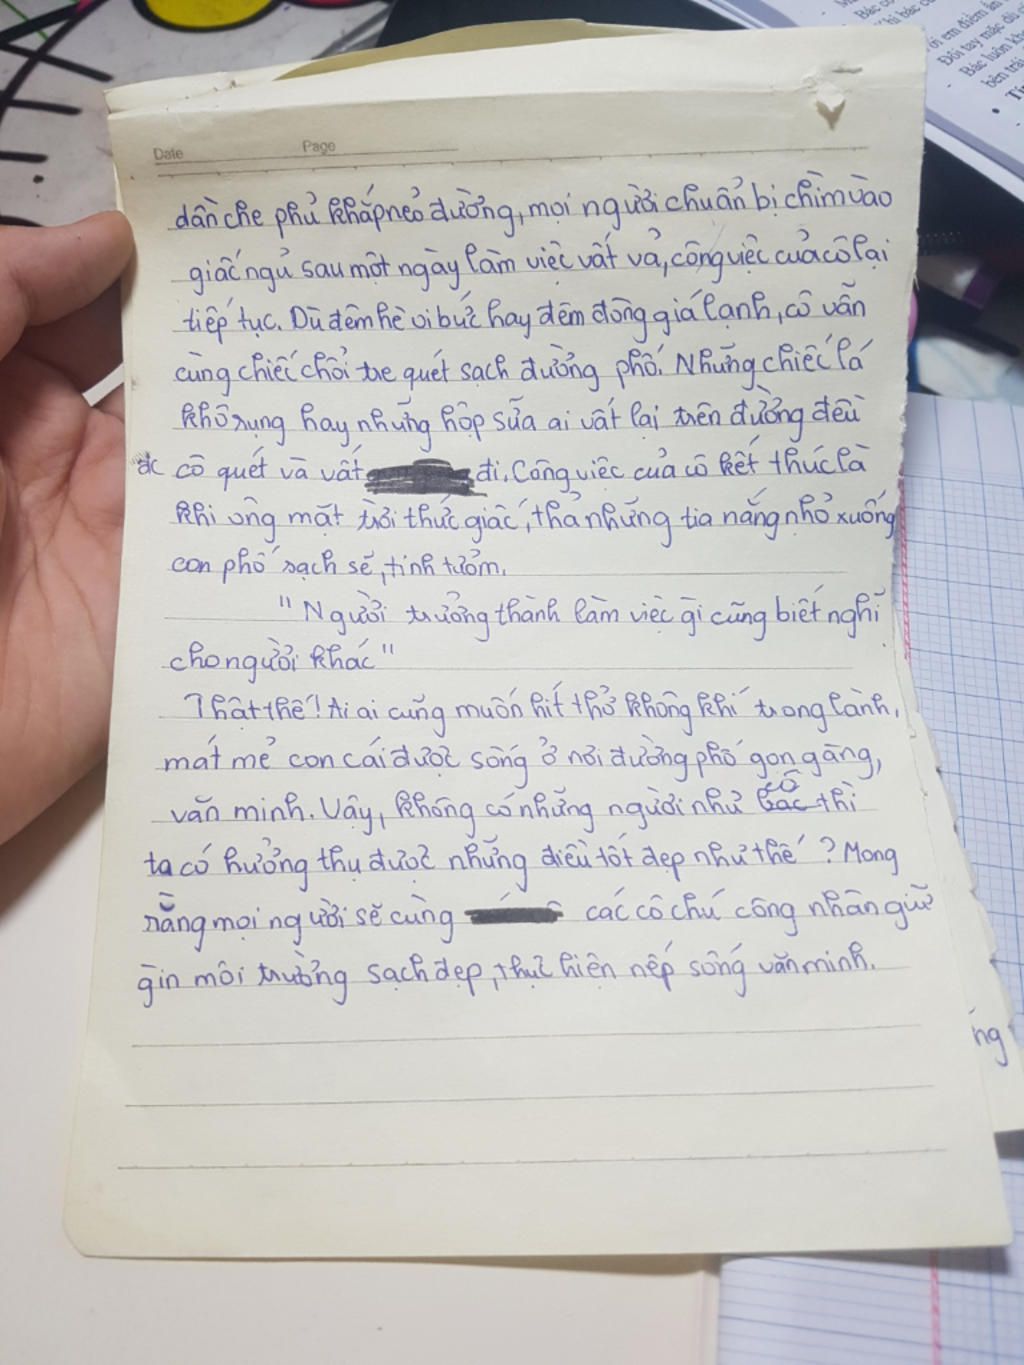 Date Page
dần che phủ khắp nẻo đường, mọi người chuẩn bị chìm vào
giấc ngủ sau một ngày làm việc vất vả, công việc của cô lại
tiếp tục. Dù đêm hè oi bức hay đêm đông giá lạnh, cô vẫn
cùng chiếc chổi tre quét sạch đường phố. Những chiếc lá
khô rụng hay những hộp sữa ai vất lại trên đường đều
đc cô quét và vất đi. Công việc của cô kết thúc là
khi ông mặt trời thức giấc, thả những tia nắng nhỏ xuống
con phố sạch sẽ, tinh tươm.
"Người trưởng thành làm việc gì cũng biết nghĩ
cho người khác"
Thật thế! Ai ai cũng muốn hít thở không khí trong lành,
mát mẻ con cái được sống ở nơi đường phố gọn gàng,
văn minh. Vậy, không có những người như cô thì
ta có hưởng thụ được những điều tốt đẹp như thế? Mong
rằng mọi người sẽ cùng các cô chú công nhân giữ
gìn môi trường sạch đẹp, thực hiện nếp sống văn minh.